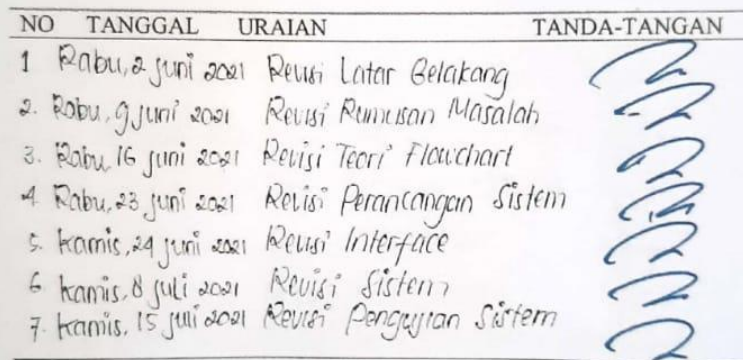 NO TANGGAL URAIAN TANDA-TANGAN
1 Rabu, 2 juni 2021 Revisi Latar Belakang
2. Rabu, 9 juni 2021 Revisi Rumusan Masalah
3. Rabu 16 juni 2021 Revisi Teori Flowchart
4. Rabu, 23 juni 2021 Revisi Perancangan Sistem
5. Kamis, 24 juni 2021 Revisi Interface
6 Kamis, 8 juli 2021 Revisi Sistem
7. Kamis, 15 juli 2021 Revisi Pengujian Sistem